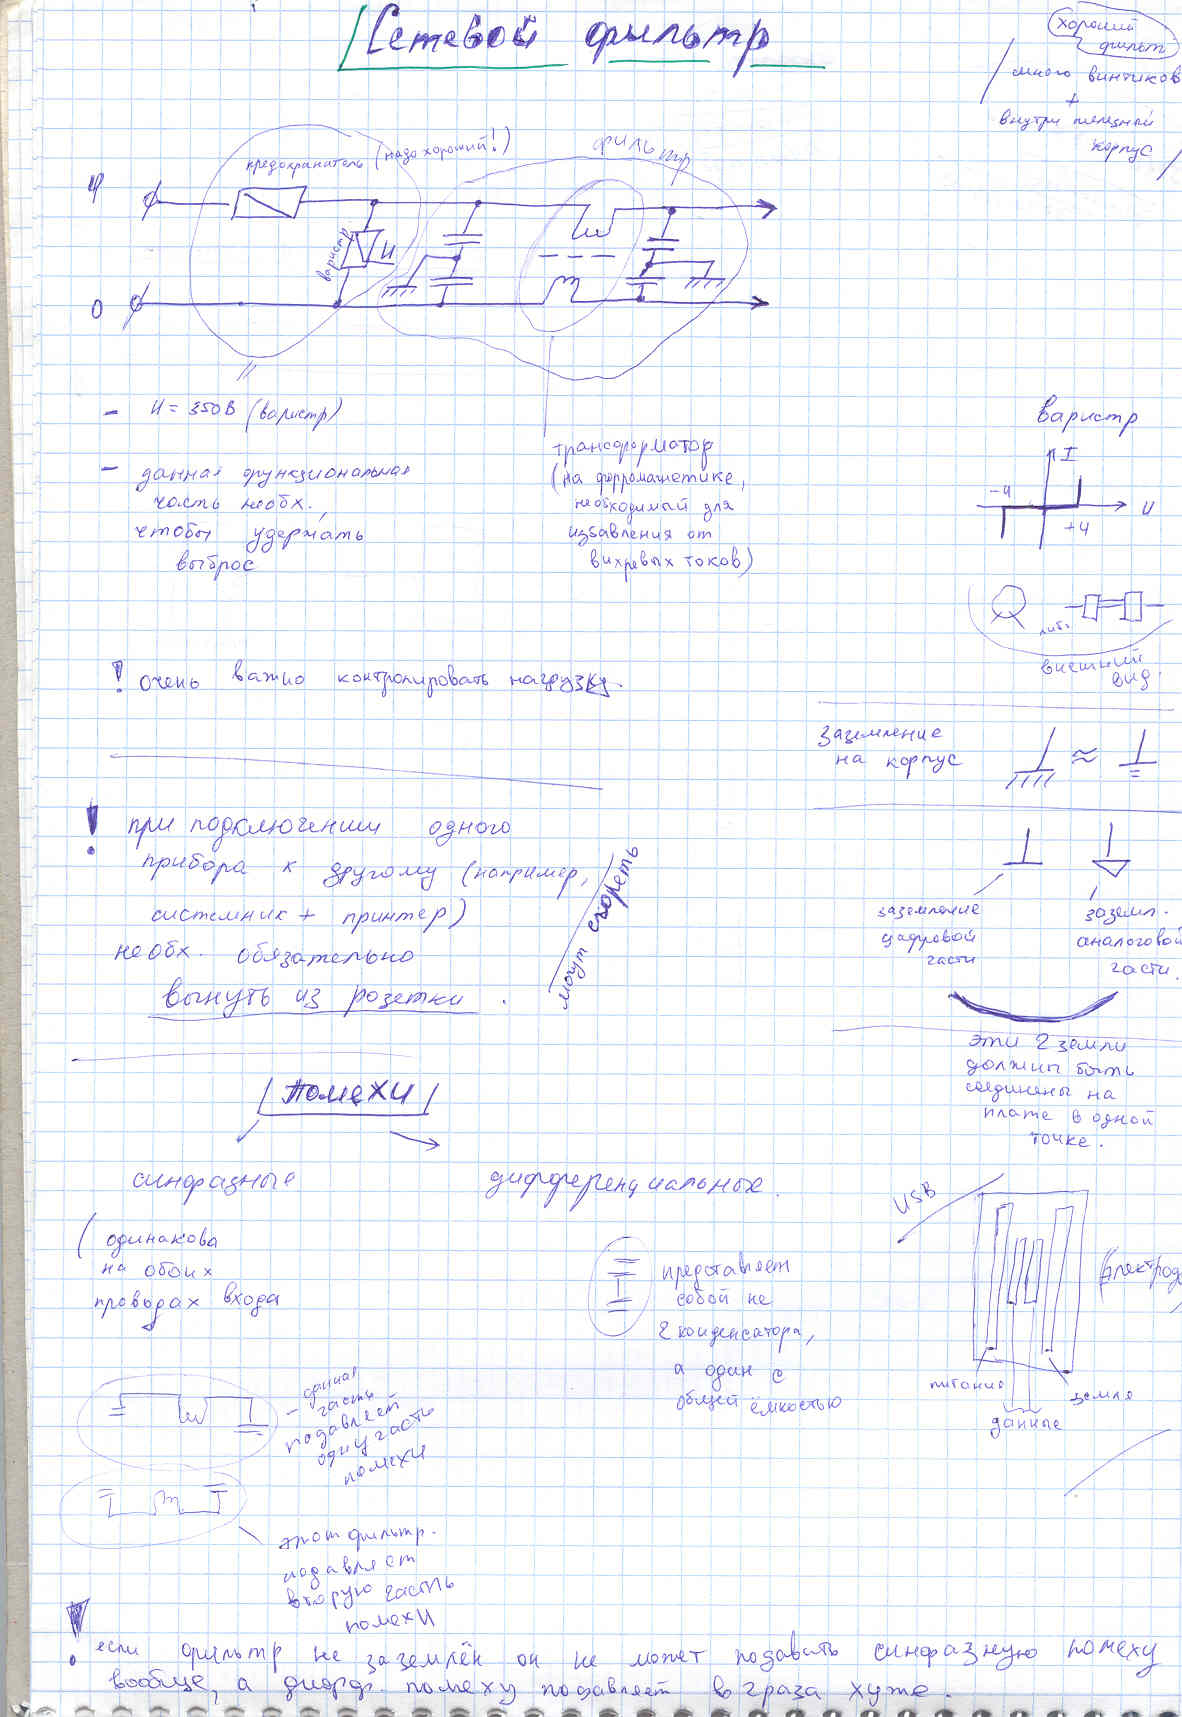 Сетевой фильтр
хороший
фильтр
много винтиков
+
внутри железный
корпус
предохранатель (надо хороший!)
фильтр
φ
варистр
И
0
- И = 350В (варистр)
- данная функциональная
часть необх.,
чтобы удержать
выброс
трансформатор
(на ферромагнетике,
необходимый для
избавления от
вихревых токов)
варистр
I
-И
И
+И
либо
внешний
вид.
! очень важно контролировать нагрузку.
Заземление
на корпус
≈
! при подключении одного
прибора к другому (например,
системник + принтер)
необх. обязательно
вынуть из розетки.
могут сгореть
заземление
цифровой
части
заземл.
аналоговой
части.
эти 2 земли
должны быть
соединены на
плате в одной
точке.
Помехи
синфазные
дифференциальные.
(одинакова
на обоих
проводах входа
представляет
собой не
2 конденсатора,
а один с
общей ёмкостью
USB
питание
земля
данные
- данная
часть
подавляет
одну часть
помехи
этот фильтр.
подавляет
вторую часть
помехи
! если фильтр не заземлён он не может подавить синфазную помеху
вообще, а дифф. помеху подавляет в 2 раза хуже.